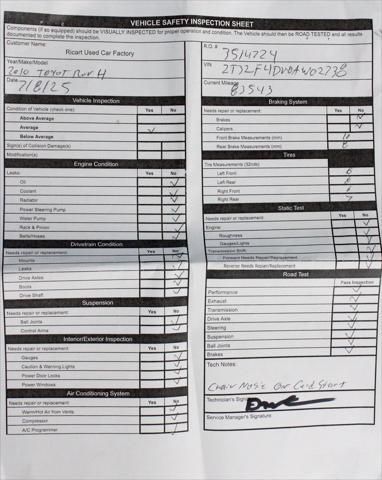 VEHICLE SAFETY INSPECTION SHEET
Components (if so equipped) should be VISUALLY INSPECTED for proper operation and condition. The Vehicle should then be ROAD TESTED and all results documented to complete the inspection.
Customer Name:
Ricart Used Car Factory
Year/Make/Model
2010 TOYOT Rav 4
Date
7/8/25
Vehicle Inspection
Condition of Vehicle (check one) Yes No
Above Average
Average
Below Average
Sign(s) of Collision Damage(s)
Modification(s)
Engine Condition
Leaks: Yes No
Oil
Coolant
Radiator
Power Steering Pump
Water Pump
Rack & Pinion
Belts/Hoses
Drivetrain Condition
Needs repair or replacement: Yes No
Mounts
Leaks
Drive Axles
Boots
Drive Shaft
Suspension
Needs repair or replacement: Yes No
Ball Joints
Control Arms
Interior/Exterior Inspection
Needs repair or replacement: Yes No
Gauges
Caution & Warning Lights
Power Door Locks
Power Windows
Air Conditioning System
Needs repair or replacement: Yes No
Warm/Hot Air from Vents
Compressor
A/C Programmer
R.O. #
3514724
VIN
Current Mileage
83543
Braking System
Needs repair or replacement: Yes No
Brakes
Calipers
Front Brake Measurements (mm) 10
Rear Brake Measurements (mm) 8
Tires
Tire Measurements (32nds)
Left Front 6
Left Rear 6
Right Front
Right Rear
Static Test
Needs repair or replacement: Yes No
Engine:
Roughness
Gauges/Lights
Transmission Shift:
Forward Needs Repair/Replacement
Reverse Needs Repair/Replacement
Road Test
Pass Inspection
Performance
Exhaust
Transmission
Drive Axle
Steering
Suspension
Ball Joints
Brakes
Tech Notes:
Start
Technician's Signature
Service Manager's Signature